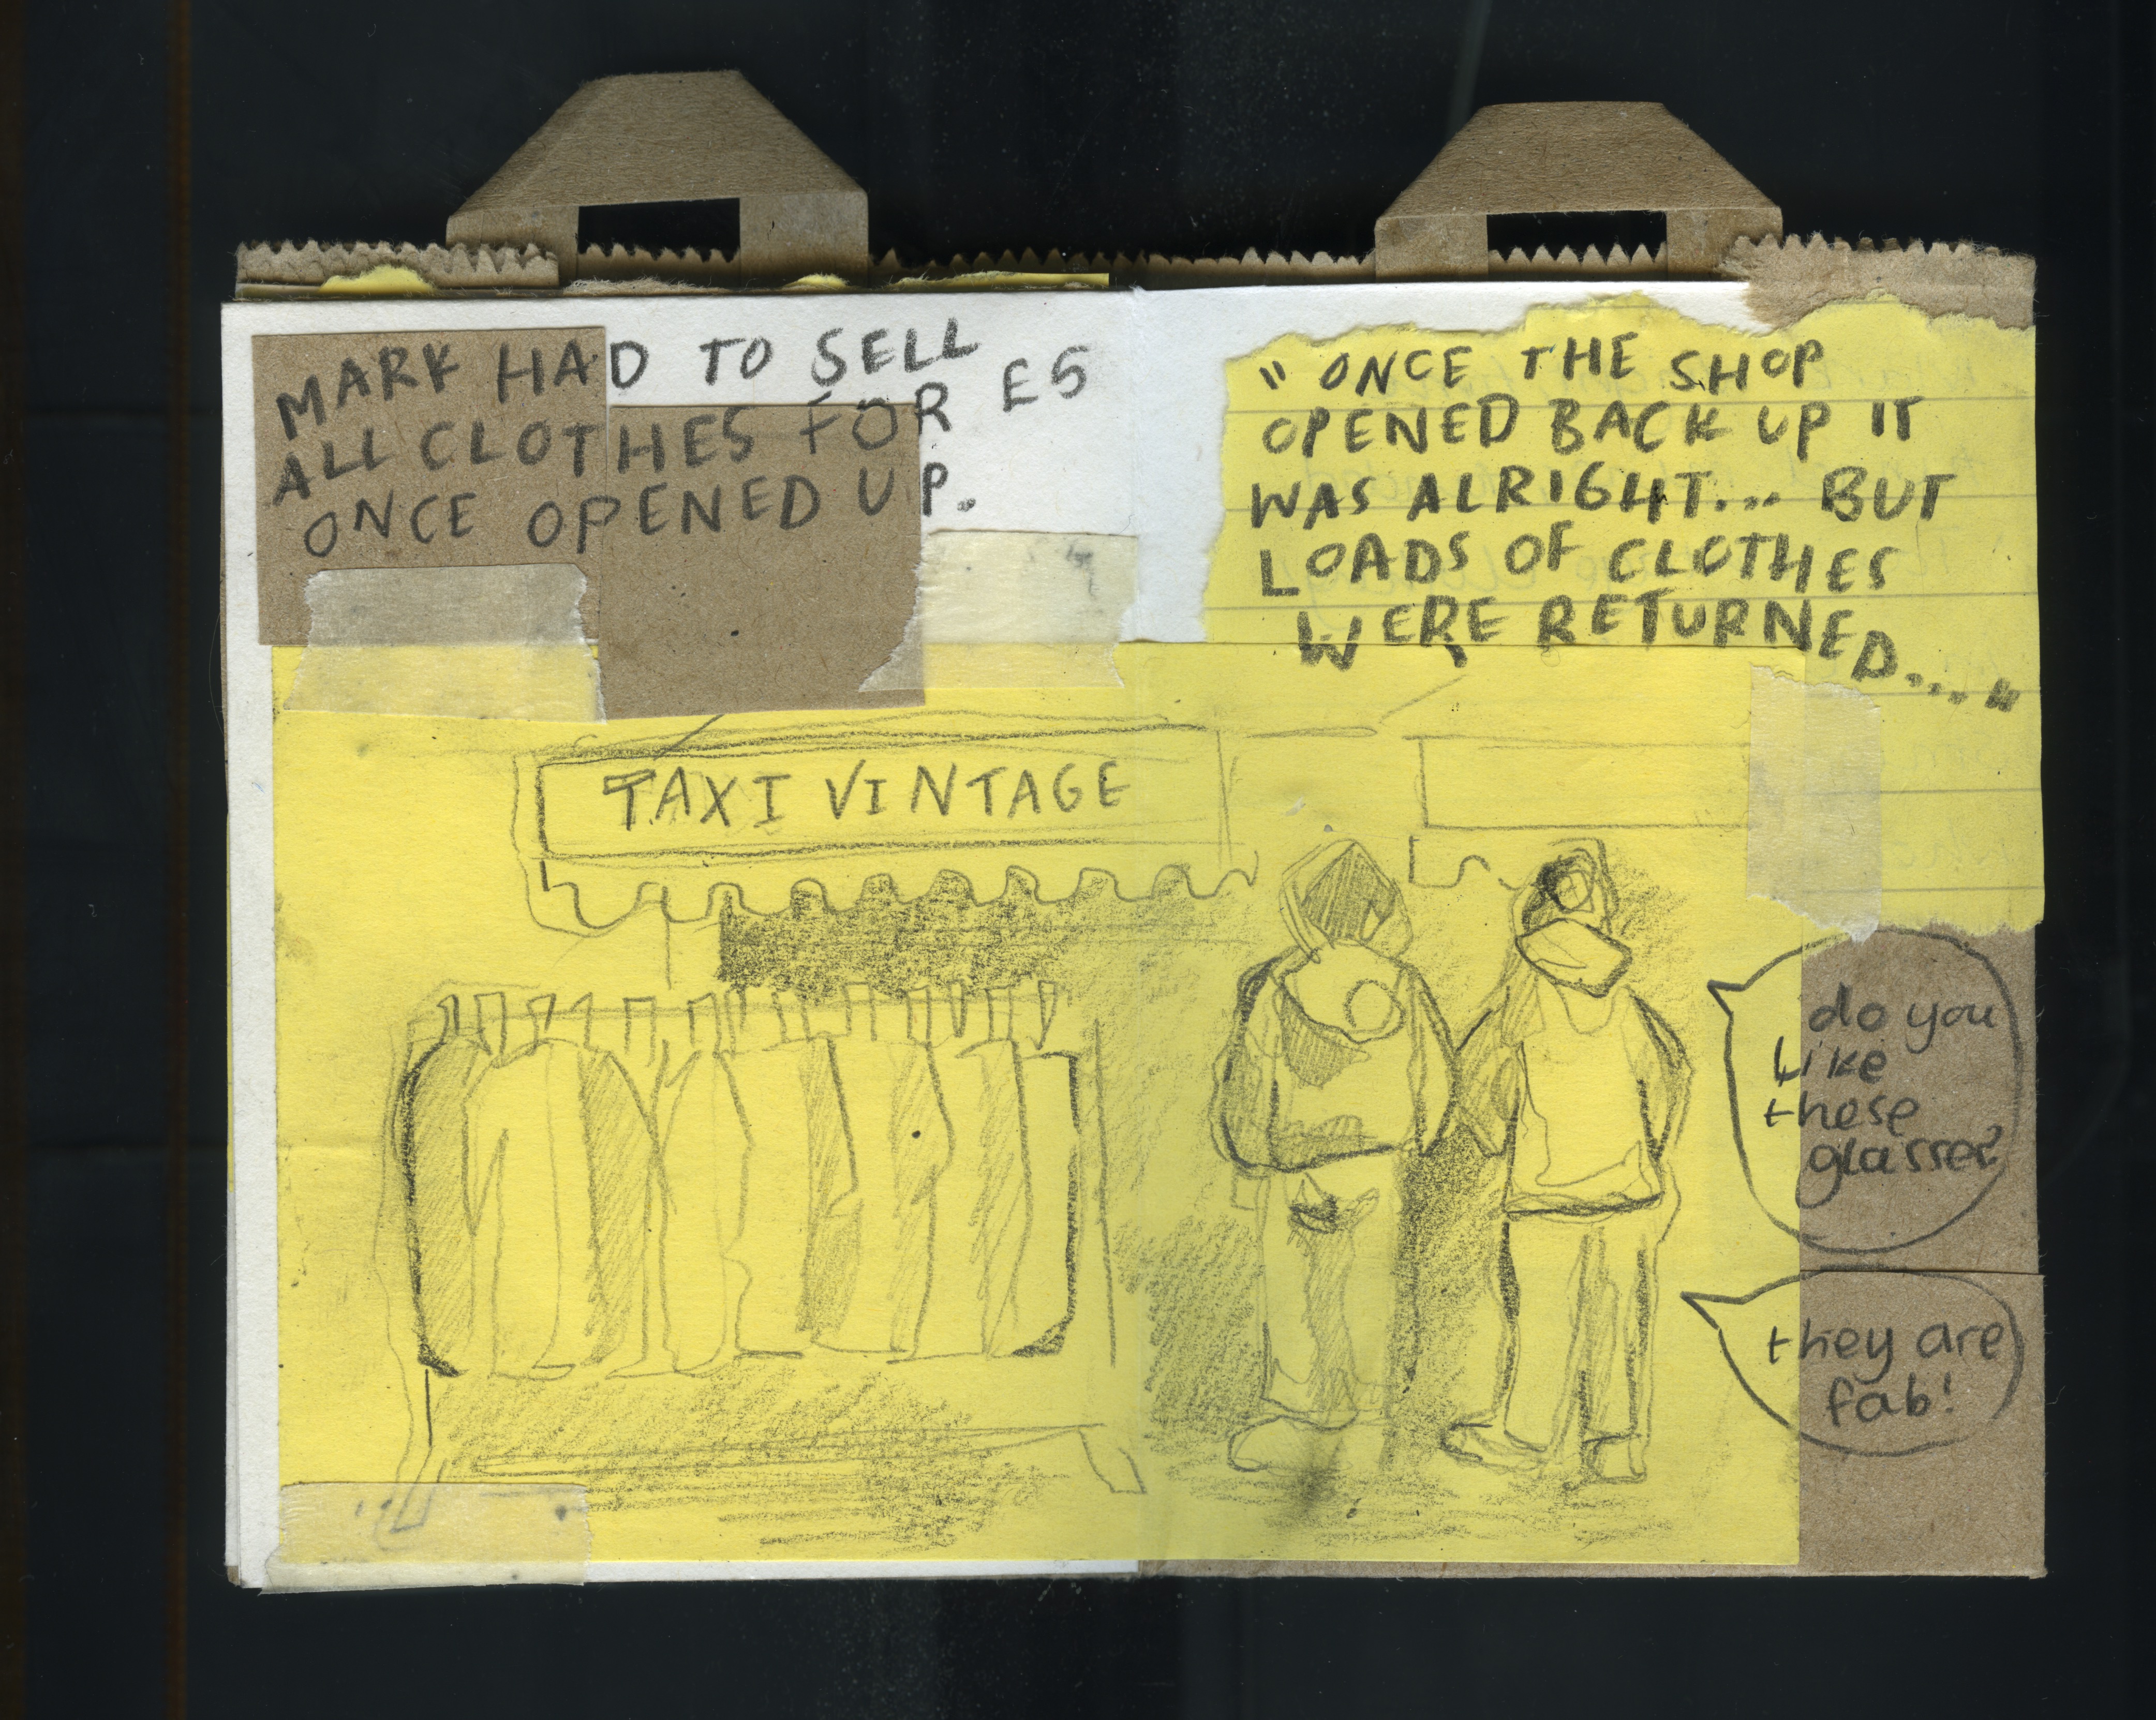 MARK HAD TO SELL
ALL CLOTHES FOR £5
ONCE OPENED UP.
"ONCE THE SHOP
OPENED BACK UP IT
WAS ALRIGHT... BUT
LOADS OF CLOTHES
WERE RETURNED...."
TAXI VINTAGE
do you
like
these
glasses?
they are
fab!